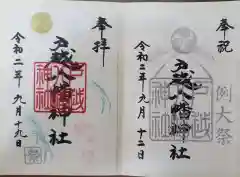 奉祝
例大祭
戸越八幡神社
令和二年九月十二日
奉拝
戸越八幡神社
令和二年九月十九日